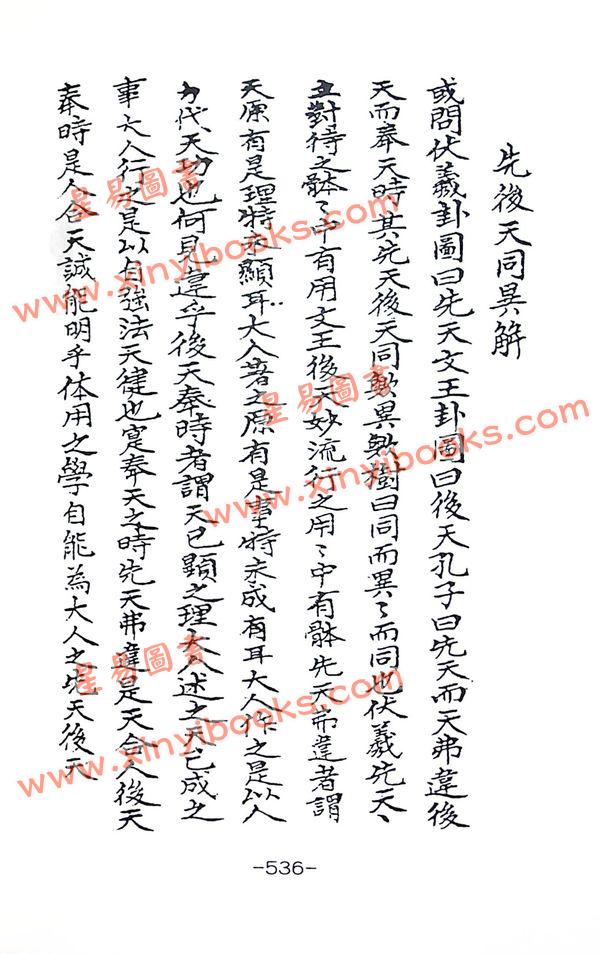 先後天同異解
或問伏羲卦圖曰先天文王卦圖曰後天孔子曰先天而天弗違後
天而奉天時其先天後天同歟異歟樹曰同而異〻而同也伏羲先天〻
立對待之骵〻中有用文王後天妙流行之用〻中有骵先天弗違者謂
天原有是理特未顯耳大人著之原有是事特未成有耳大人作之是以人
力代天功也何見違乎後天奉時者謂天已顯之理大人述之天已成之
事大人行之是以自強法天健也寔奉天之時先天弗違是天合人後天
奉時是人合天誠能明乎体用之學自能為大人之先天後天
-536-
星易圖書
www.xinyibooks.com
星易圖書
www.xinyibooks.com
星易圖書
www.xinyibooks.com